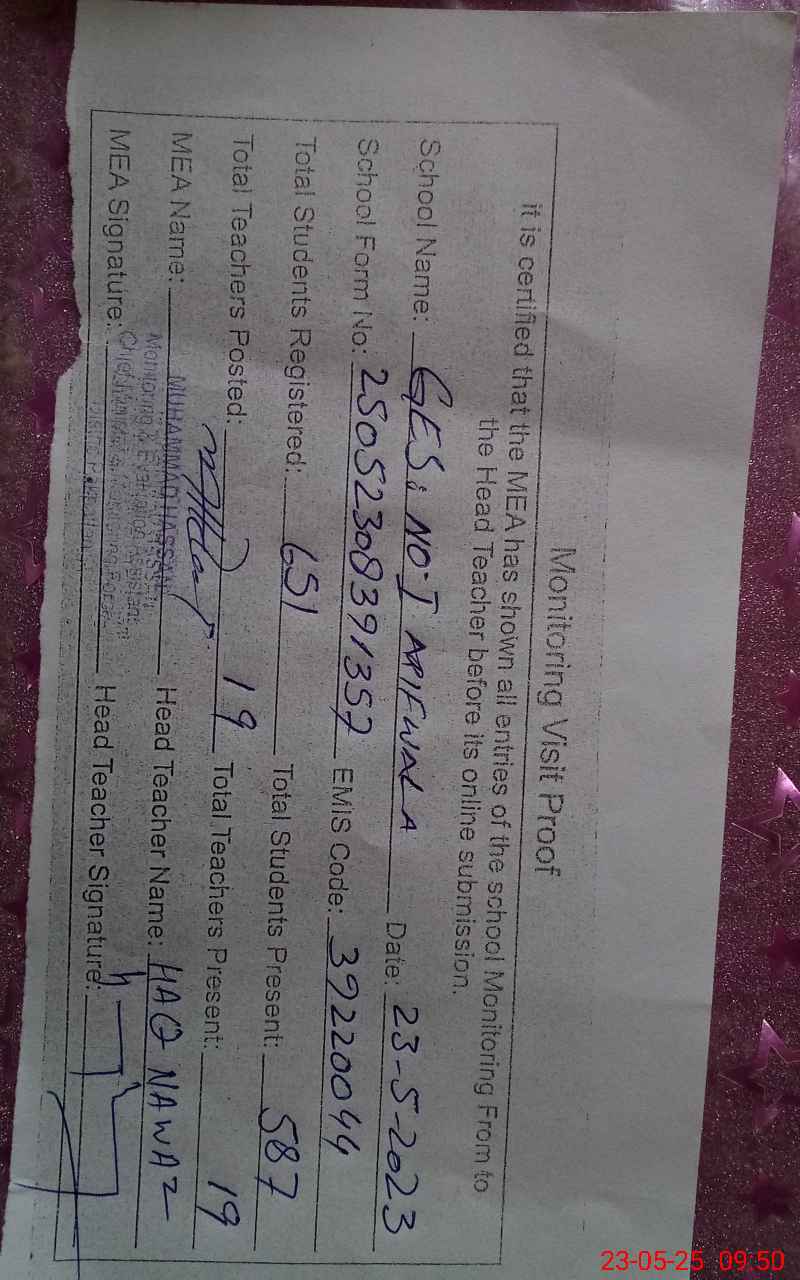 Monitoring Visit Proof
it is certified that the MEA has shown all entries of the school Monitoring From to
the Head Teacher before its online submission.
School Name: GES: NO-I ARIFWALA Date: 23-5-2023
School Form No: 25052308391357 EMIS Code: 39220044
Total Students Registered: 651 Total Students Present: 587
Total Teachers Posted: 19 Total Teachers Present: 19
MEA Name: MUHAMMAD HASSAN Head Teacher Name: HAQ NAWAZ
Monitoring & Evaluation Assistant
MEA Signature: Head Teacher Signature:
23-05-25 09:50